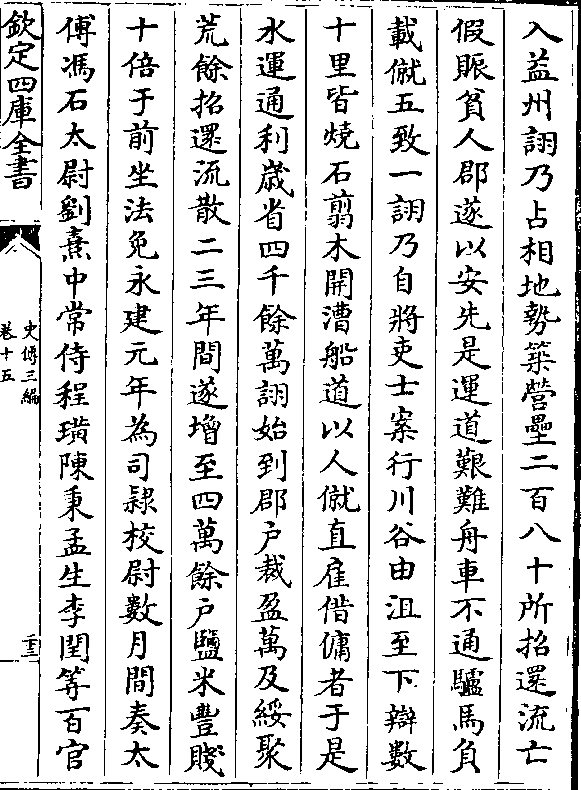 入益州詡乃占相地勢築營壘二百八十所招還流亡
假賑貧人郡遂以安先是運道艱難舟車不通驢馬負
載僦五致一詡乃自將吏士案行川谷由沮至下辯數
十里皆燒石翦木開漕船道以人僦直雇借傭者于是
水運通利歲省四千餘萬詡始到郡户裁盈萬及綏聚
荒餘招還流散二三年間遂增至四萬餘户鹽米豐賤
十倍于前坐法免永建元年為司隸校尉數月間奏太
傅馮石太尉劉熹中常侍程璜陳秉孟生李閏等百官
欽定四庫全書
史傳三編
卷十五